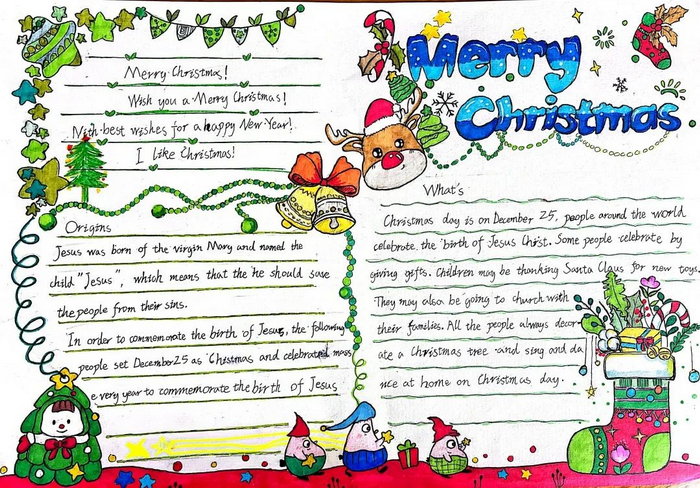 Merry Christmas
Merry Christmas!
Wish you a Merry Christmas!
With best wishes for a happy New Year!
I like Christmas!
Origins
Jesus was born of the virgin Mary and named the
child "Jesus", which means that the he should save
the people from their sins.
In order to commemorate the birth of Jesus, the following
people set December 25 as Christmas and celebrated mass
every year to commemorate the birth of Jesus
What's
Christmas day is on December 25, people around the world
celebrate the birth of Jesus Christ. Some people celebrate by
giving gifts. Children may be thanking Santa Claus for new toys.
They may also be going to church with
their families. All the people always decor
ate a Christmas tree and sing and da
nce at home on Christmas day.